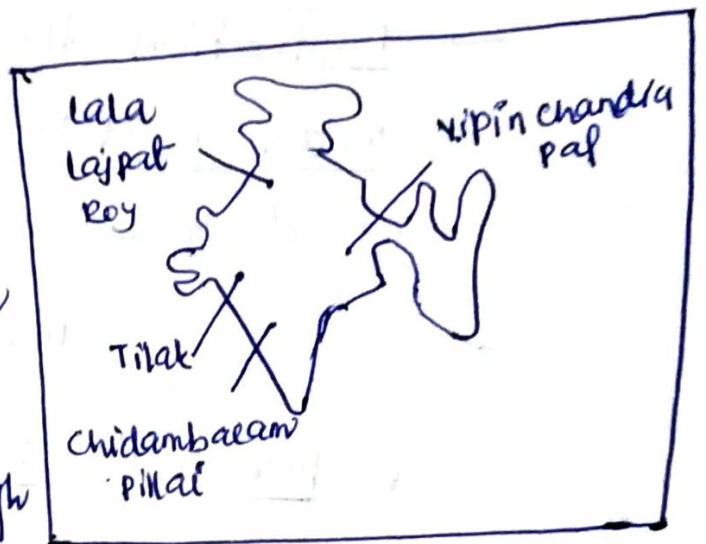 Lala
Lajpat
Roy
Vipin chandra
pal
Tilak
Chidambaram
pillai